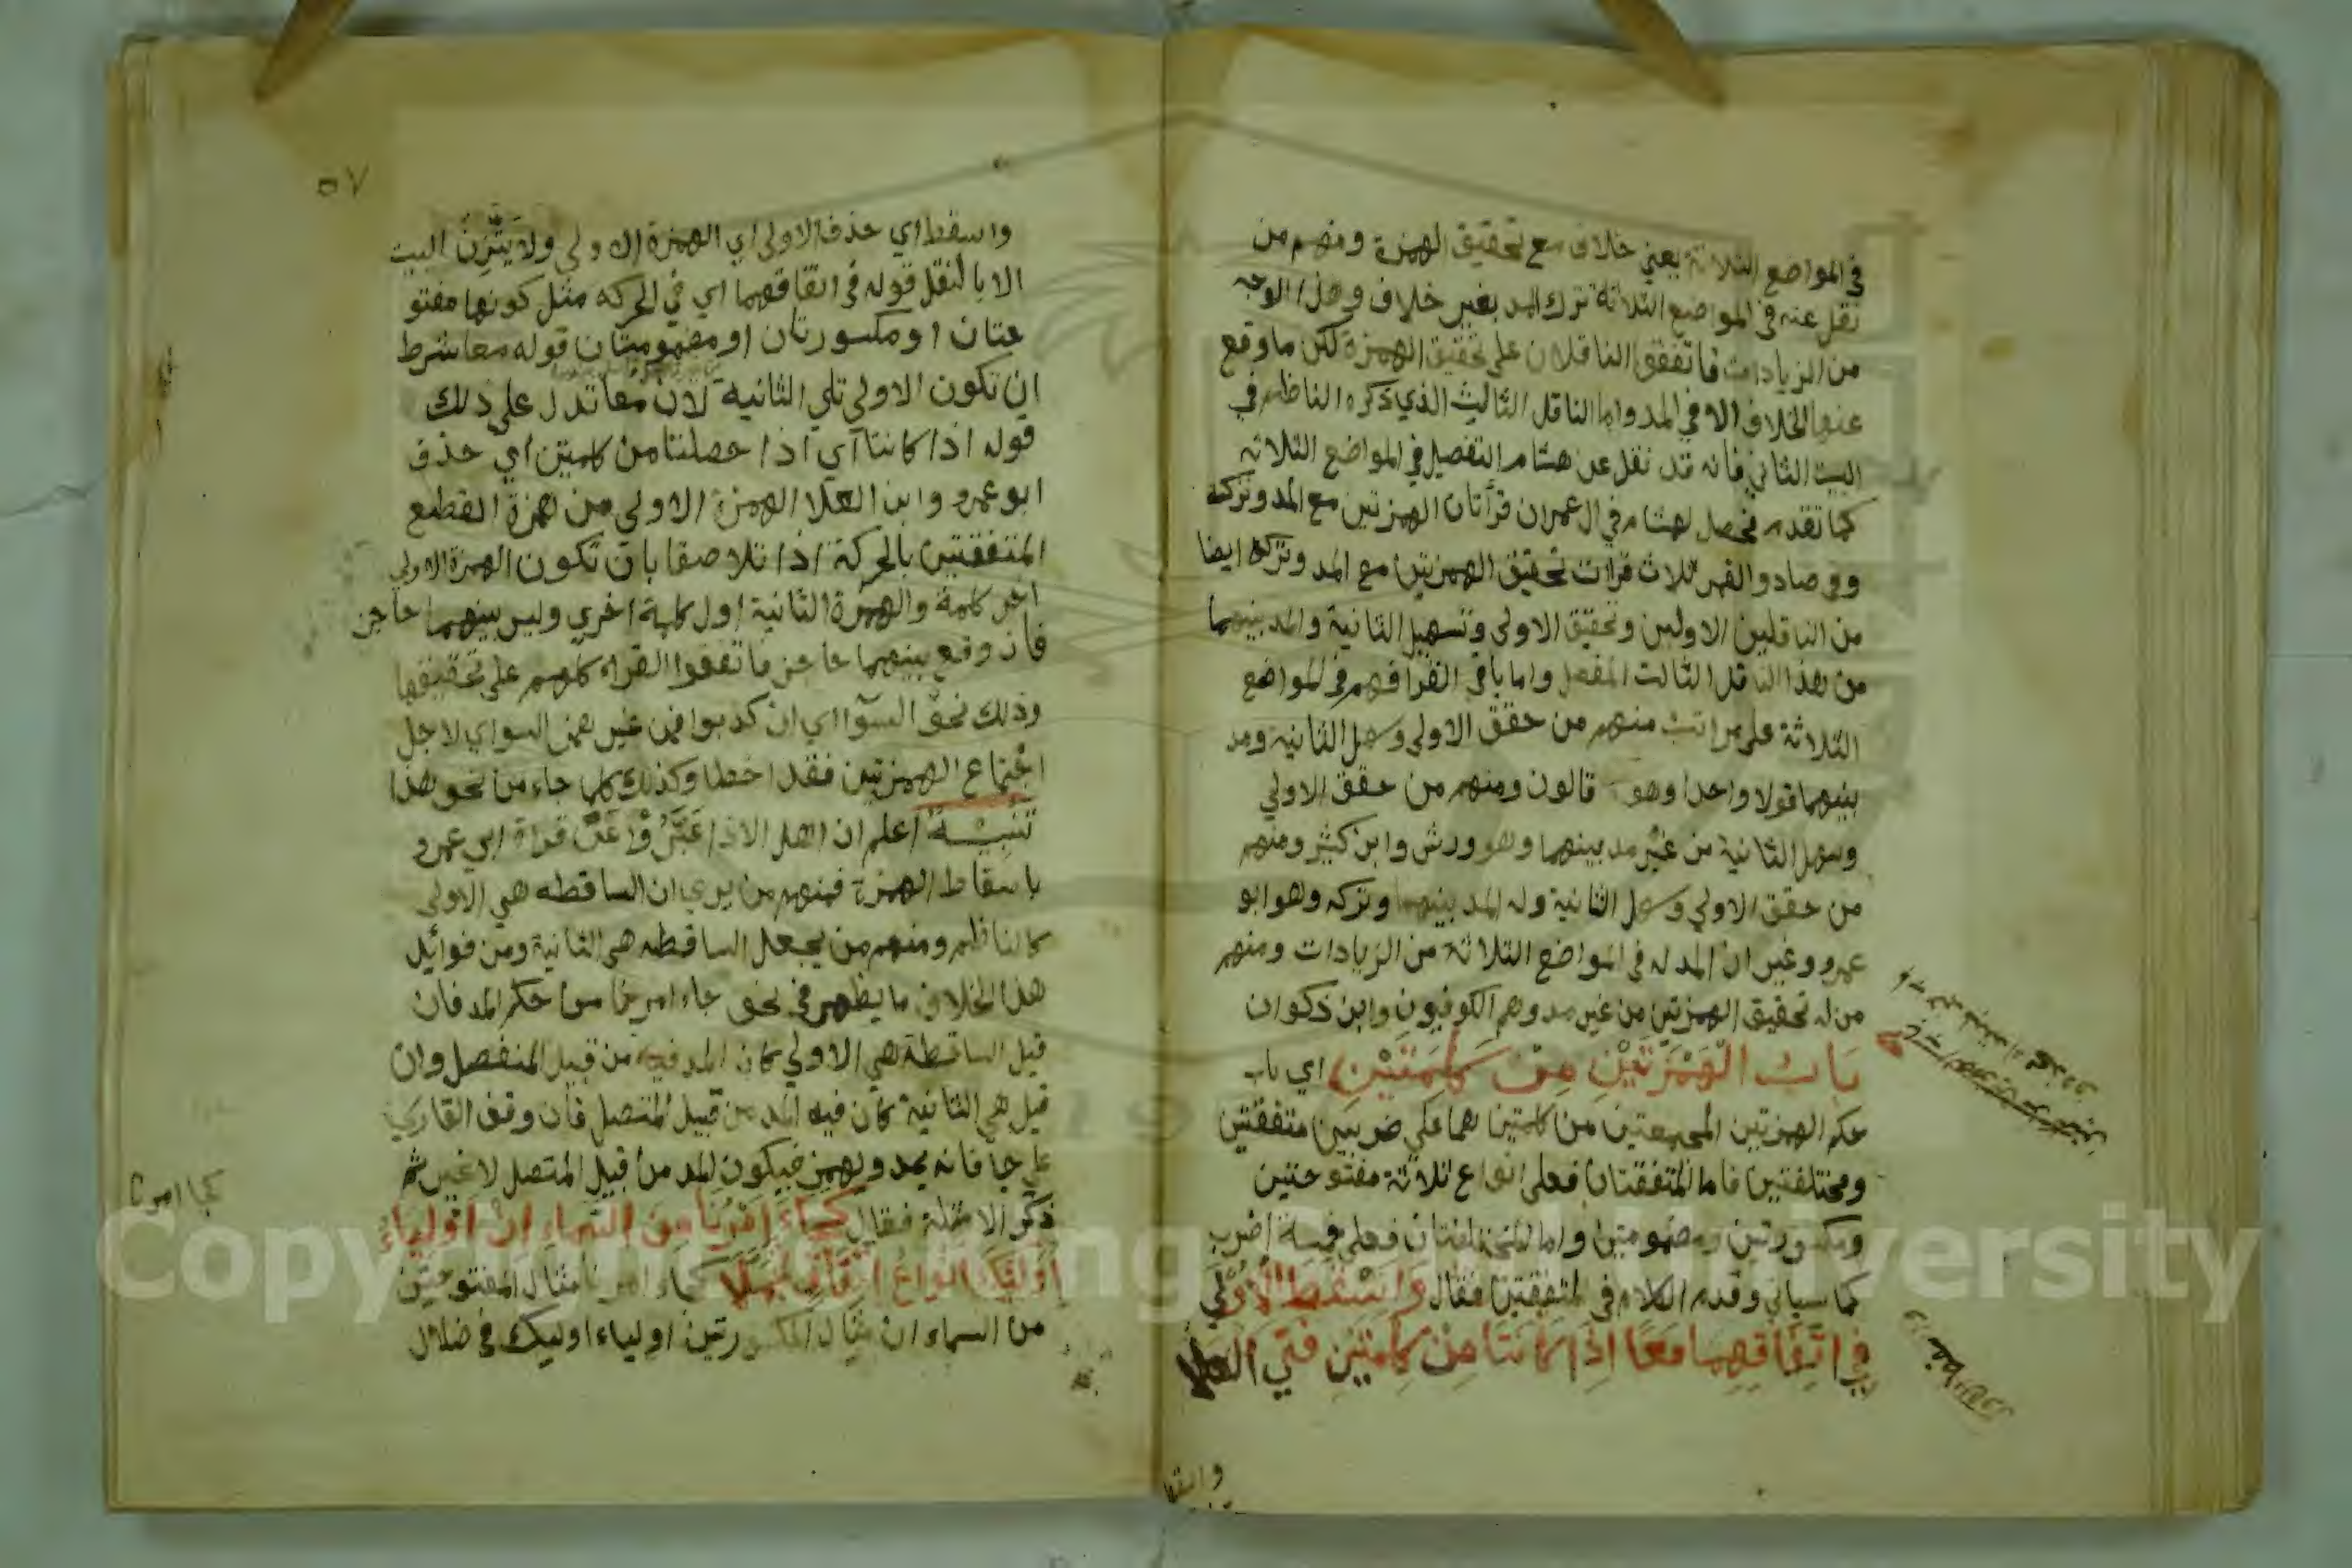 في المواضع الثلاثة يعني خلاف مع تحقيق الهمزة ومنهم من
نقل عنه في المواضع الثلاثة ترك المد بغير خلاف وهذا الوجه
من الزيادات فاتفق الناقلان على تحقيق الهمزة لكن ما وقع
عنهما الخلاف الا في المد واما الناقل الثالث الذي ذكره الناظم في
البيت الثاني فانه قد نقل عن هشام التفصيل في المواضع الثلاثه
كما تقدم فحصل لهشام في ال عمران قرأتان الهمزتين مع المد وتركه
وفي صاد والقمر ثلاث قرات تحقيق الهمزتين مع المد وتركه ايضا
من الناقلين الاولين وتحقيق الاولى وتسهيل الثانية والمد بينهما
من هذا الناقل الثالث المفصل واما باقي القرا فهم في المواضع
الثلاثة على مراتب منهم من حقق الاولى وسهل الثانيه ومد
بينهما قولا واحدا وهو قالون ومنهم من حقق الاولي
وسهل الثانية من غير مد بينهما وهو ورش وابن كثير ومنهم
من حقق الاولي وسهل الثانية وله المد بينهما وتركه وهو ابو
عمرو وغير ان المد له في المواضع الثلاثة من الزيادات ومنهم
من له تحقيق الهمزتين من غير مد وهم الكوفيون وابن ذكوان
بَابُ الْهَمْزَتَيْنِ مِنْ كَلِمَتَيْنِ اي باب
حكم الهمزتين المجتمعتين من كلمتين هما على ضربين متفقتين
ومختلفتين فاما المتفقتان فعلى انواع ثلاثة مفتوحتين
ومكسورتين ومضمومتين واما المختلفتان فعلى خمسة اضرب
كما سياتي وقدم الكلام في المتفقتين فقال وَاسْقَطَ الْاُوْلَي
فِي اتِّفَاقِهِمَا مَعًا اِذَا كَانَتَا مِنْ كَلِمَتَيْنِ فَتَي العلا
٥٧
واسقط اي حذف الاولى اي الهمزة الاولي ولا يَتَّزِنُ البيت
الا بالنقل قوله في اتفاقهما اي في الحركه مثل كونهما مفتو
حتان او مكسورتان او مضمومتان قوله معا شرط
ان تكون الاولي تلي الثانية لان معا تدل على ذلك
قوله اذا كانتا اي اذا حصلتا من كلمتين اي حذف
ابو عمرو وابن العلا الهمزة الاولي من همزة القطع
المتفقتين بالحركة اذا تلاصقا بان تكون الهمزة الاولي
اخر كلمة والهمزة الثانية اول كلمة اخري وليس بينهما حاجز
فان وقع بينهما حاجز فاتفقوا القراء كلهم على تحقيقها
وذلك نحو السوآا اي ان كذبوا فمن غير همز السواي لاجل
اجْتماع الهمزتين فقد اخطا وكذلك كلما جاء من نحو هذا
تنبيه اعلم ان اهل الاذا عَبَّرُوْا عَنْ قراة ابي عمرو
باسقاط الهمزة فمنهم من يري ان الساقطه هي الاولى
كالناظم ومنهم من يجعل الساقطه هي الثانية ومن فوائد
هذا الخلاف ما يظهر في نحو جاء امرنا من حكم المد فان
قيل الساقطة هي الاولي كان المد فيه من قبيل المنفصل وان
قيل هي الثانية كان فيه المد من قبيل المتصل فان وقف القاري
على جا فانه يمد ويهمز فيكون المد من قبيل المتصل لا غير ثم
ذكر الامثلة فقال كَجَاءَ اَمْرُنَا مِنَ السَّمَاءِ اِنْ اَوْلِيَاءُ
اُولٰئِكَ انْوَاعُ اتِّفَاقٍ تَجَمَّلَا كجاء امرنا مثال المفتوحتين
من السماء ان مثال المكسورتين اولياء اوليك في ضلال
كجا امرنا
Copyright © King Saud University